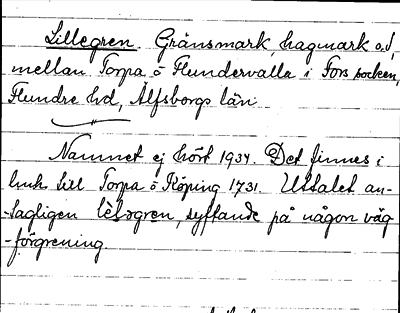 Lillegren. Gränsmark, hagmark o.d.,
mellan Torpa o Flundervalla i Fors socken,
Flundre hd, Älfsborgs län.
Namnet ej hört 1934. Det finnes i
bruk till Torpa o Röping 1731. Uttalet an-
-tagligen syftande på någon väg
-förgrening